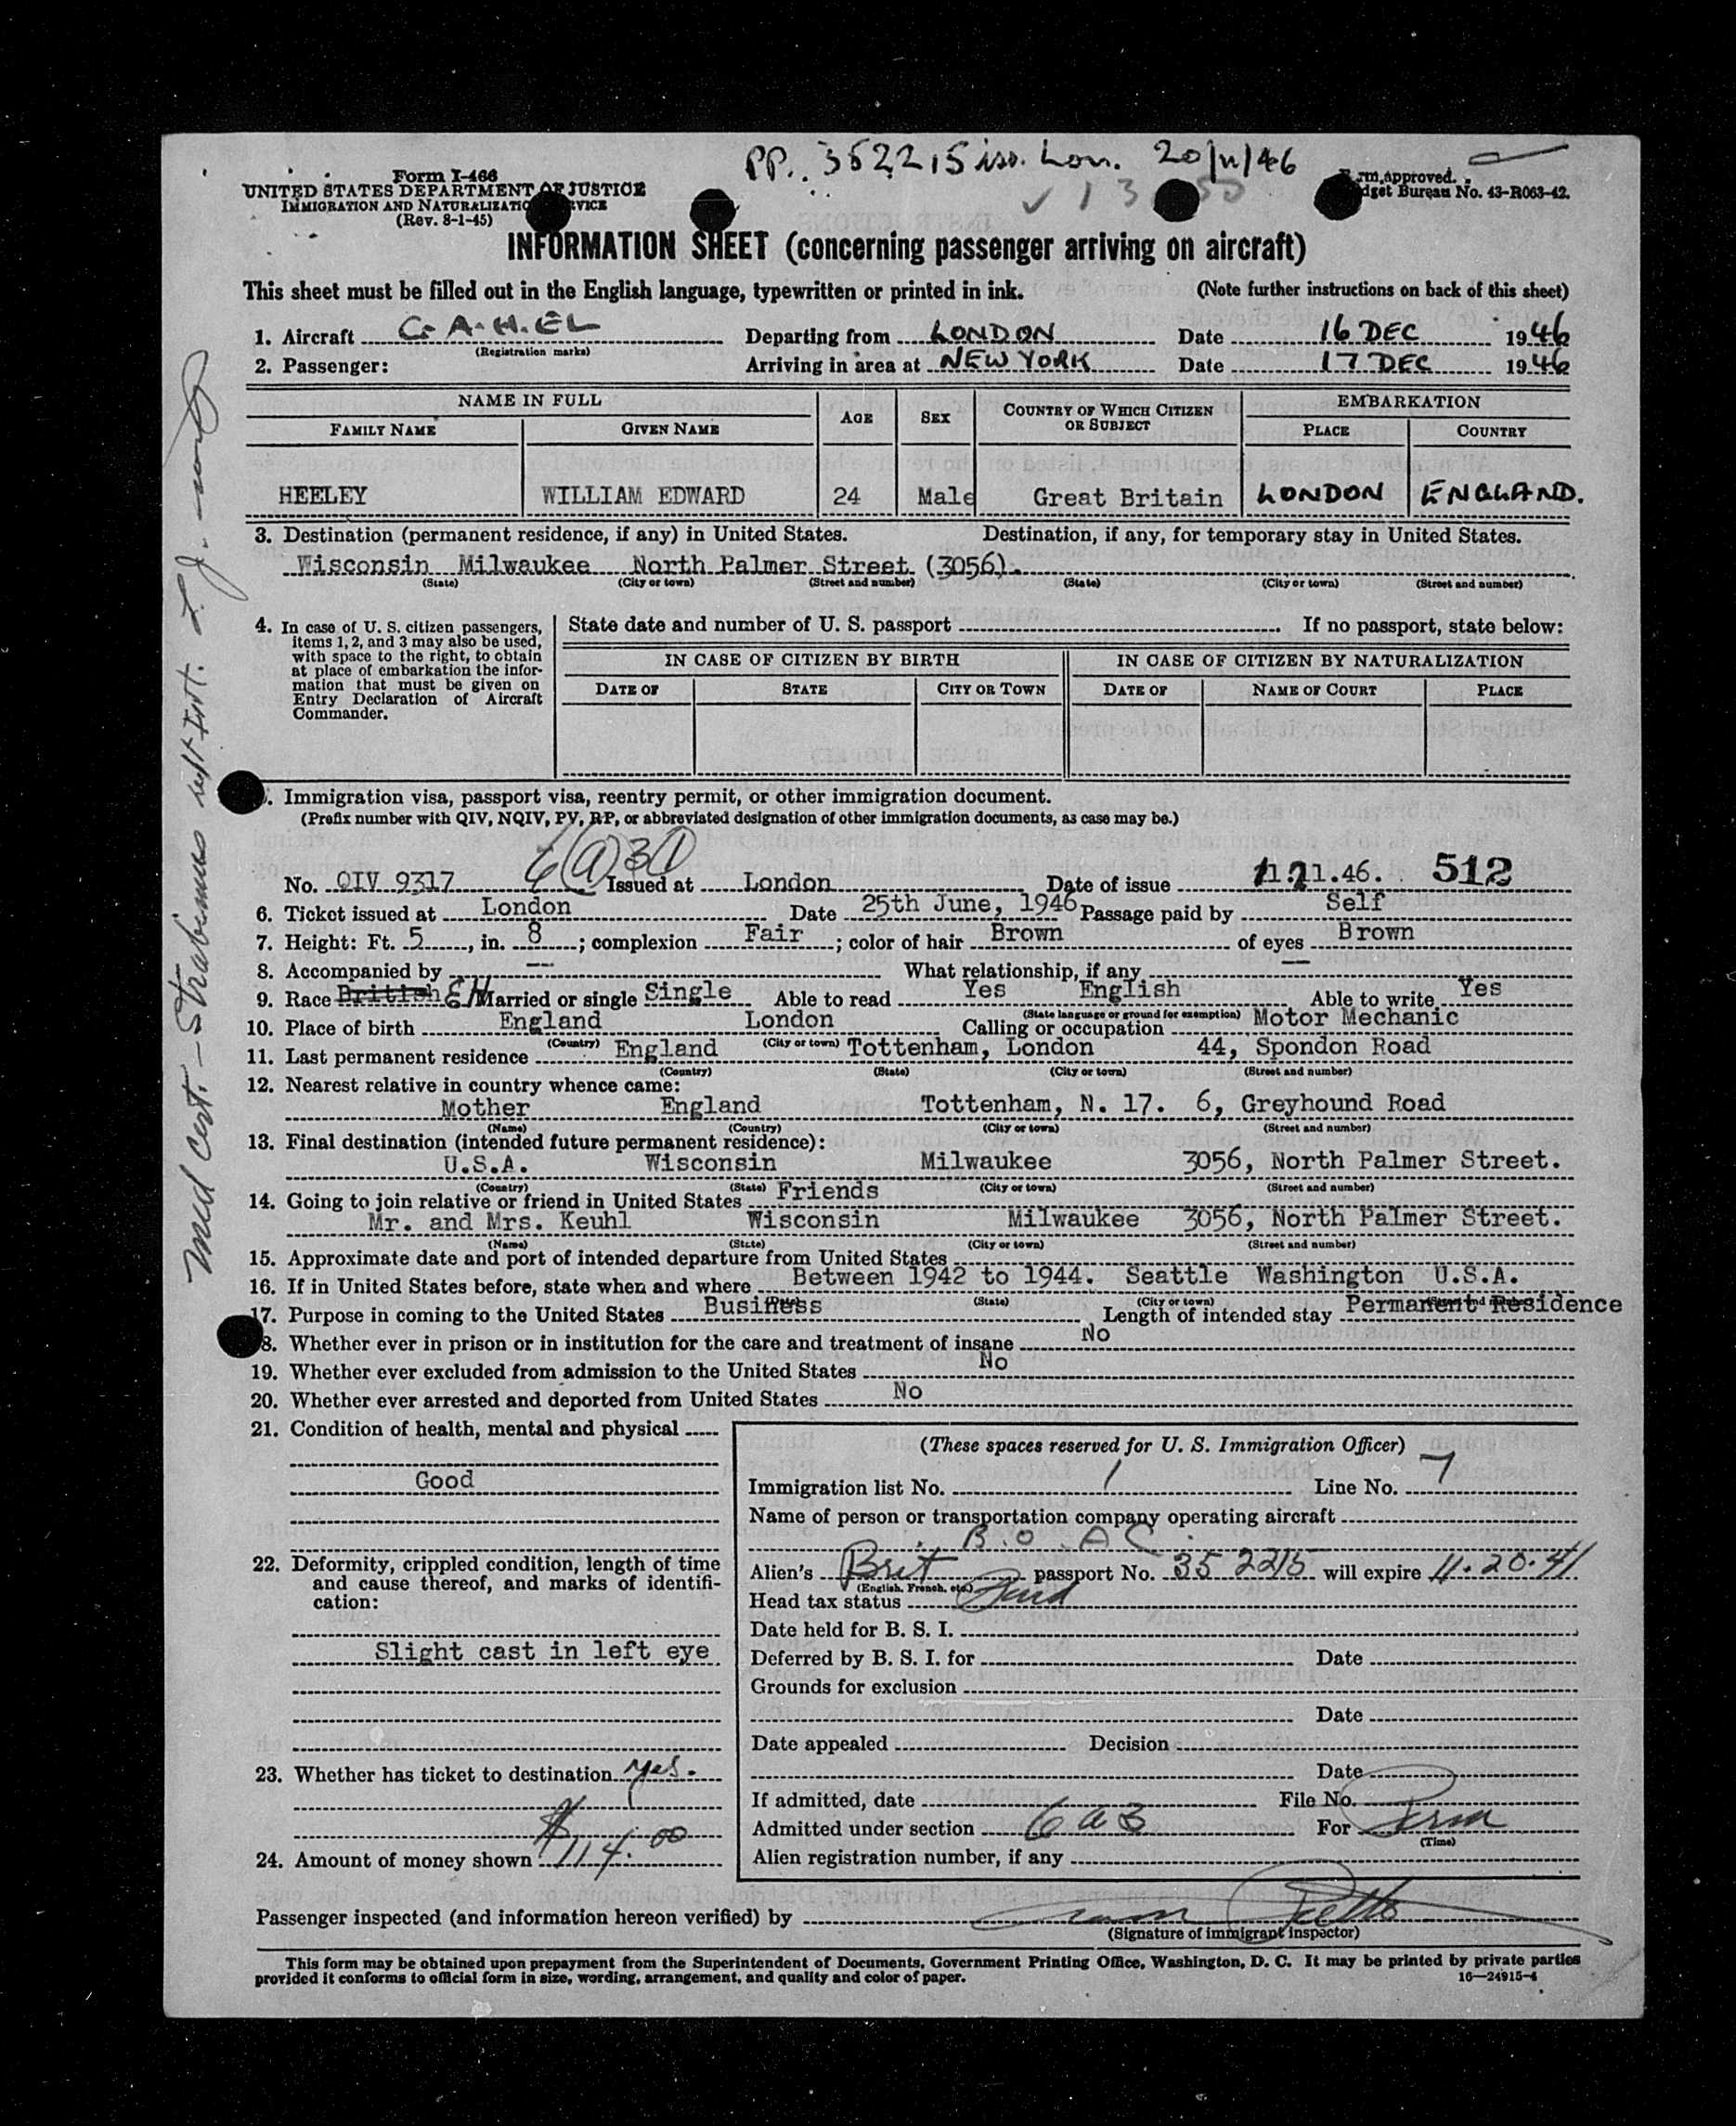 PP. 352215 iss. Lon. 20/11/46
Form I-466
UNITED STATES DEPARTMENT OF JUSTICE
IMMIGRATION AND NATURALIZATION SERVICE
(Rev. 8-1-45)
Form approved.
Budget Bureau No. 43-R063-42.
INFORMATION SHEET (concerning passenger arriving on aircraft)
This sheet must be filled out in the English language, typewritten or printed in ink. (Note further instructions on back of this sheet)
1. Aircraft G-A.H.EL Departing from LONDON Date 16 DEC 1946
(Registration marks)
2. Passenger: Arriving in area at NEW YORK Date 17 DEC 1946
NAME IN FULL AGE SEX COUNTRY OF WHICH CITIZEN OR SUBJECT EMBARKATION
FAMILY NAME GIVEN NAME PLACE COUNTRY
HEELEY WILLIAM EDWARD 24 Male Great Britain LONDON ENGLAND.
3. Destination (permanent residence, if any) in United States. Destination, if any, for temporary stay in United States.
Wisconsin Milwaukee North Palmer Street (3056).
(State) (City or town) (Street and number) (State) (City or town) (Street and number)
4. In case of U. S. citizen passengers,
items 1, 2, and 3 may also be used,
with space to the right, to obtain
at place of embarkation the infor-
mation that must be given on
Entry Declaration of Aircraft
Commander.
State date and number of U. S. passport If no passport, state below:
IN CASE OF CITIZEN BY BIRTH IN CASE OF CITIZEN BY NATURALIZATION
DATE OF STATE CITY OR TOWN DATE OF NAME OF COURT PLACE
. Immigration visa, passport visa, reentry permit, or other immigration document.
(Prefix number with QIV, NQIV, PV, RP, or abbreviated designation of other immigration documents, as case may be.)
No. QIV 9317 Issued at London Date of issue .11.46. 512
6. Ticket issued at London Date 25th June, 1946 Passage paid by Self
7. Height: Ft. 5, in. 8; complexion Fair; color of hair Brown of eyes Brown
8. Accompanied by — What relationship, if any —
9. Race British EN Married or single Single Able to read Yes English Able to write Yes
(State language or ground for exemption)
10. Place of birth England London Calling or occupation Motor Mechanic
(Country) (City or town)
11. Last permanent residence England Tottenham, London 44, Spondon Road
(Country) (State) (City or town) (Street and number)
12. Nearest relative in country whence came:
Mother England Tottenham, N. 17. 6, Greyhound Road
(Name) (Country) (City or town) (Street and number)
13. Final destination (intended future permanent residence):
U.S.A. Wisconsin Milwaukee 3056, North Palmer Street.
(Country) (State) (City or town) (Street and number)
14. Going to join relative or friend in United States Friends
Mr. and Mrs. Keuhl Wisconsin Milwaukee 3056, North Palmer Street.
(Name) (State) (City or town) (Street and number)
15. Approximate date and port of intended departure from United States
16. If in United States before, state when and where Between 1942 to 1944. Seattle Washington U.S.A.
(Date) (State) (City or town) (Street and number)
17. Purpose in coming to the United States Business Length of intended stay Permanent Residence
18. Whether ever in prison or in institution for the care and treatment of insane No
19. Whether ever excluded from admission to the United States No
20. Whether ever arrested and deported from United States No
21. Condition of health, mental and physical
Good
22. Deformity, crippled condition, length of time
and cause thereof, and marks of identifi-
cation:
Slight cast in left eye
23. Whether has ticket to destination yes.
24. Amount of money shown $114.00
(These spaces reserved for U. S. Immigration Officer)
Immigration list No. 1 Line No. 7
Name of person or transportation company operating aircraft
B.O.A.C.
Alien's Brit passport No. 352215 will expire 11.20.41
(English, French, etc.)
Head tax status Paid
Date held for B. S. I.
Deferred by B. S. I. for Date
Grounds for exclusion
Date
Date appealed Decision
Date
If admitted, date File No.
Admitted under section 6 a 3 For Perm
(Time)
Alien registration number, if any
Passenger inspected (and information hereon verified) by
(Signature of immigrant inspector)
This form may be obtained upon prepayment from the Superintendent of Documents, Government Printing Office, Washington, D. C. It may be printed by private parties
provided it conforms to official form in size, wording, arrangement, and quality and color of paper. 16—24915-4
Med Cert. – Strabismus